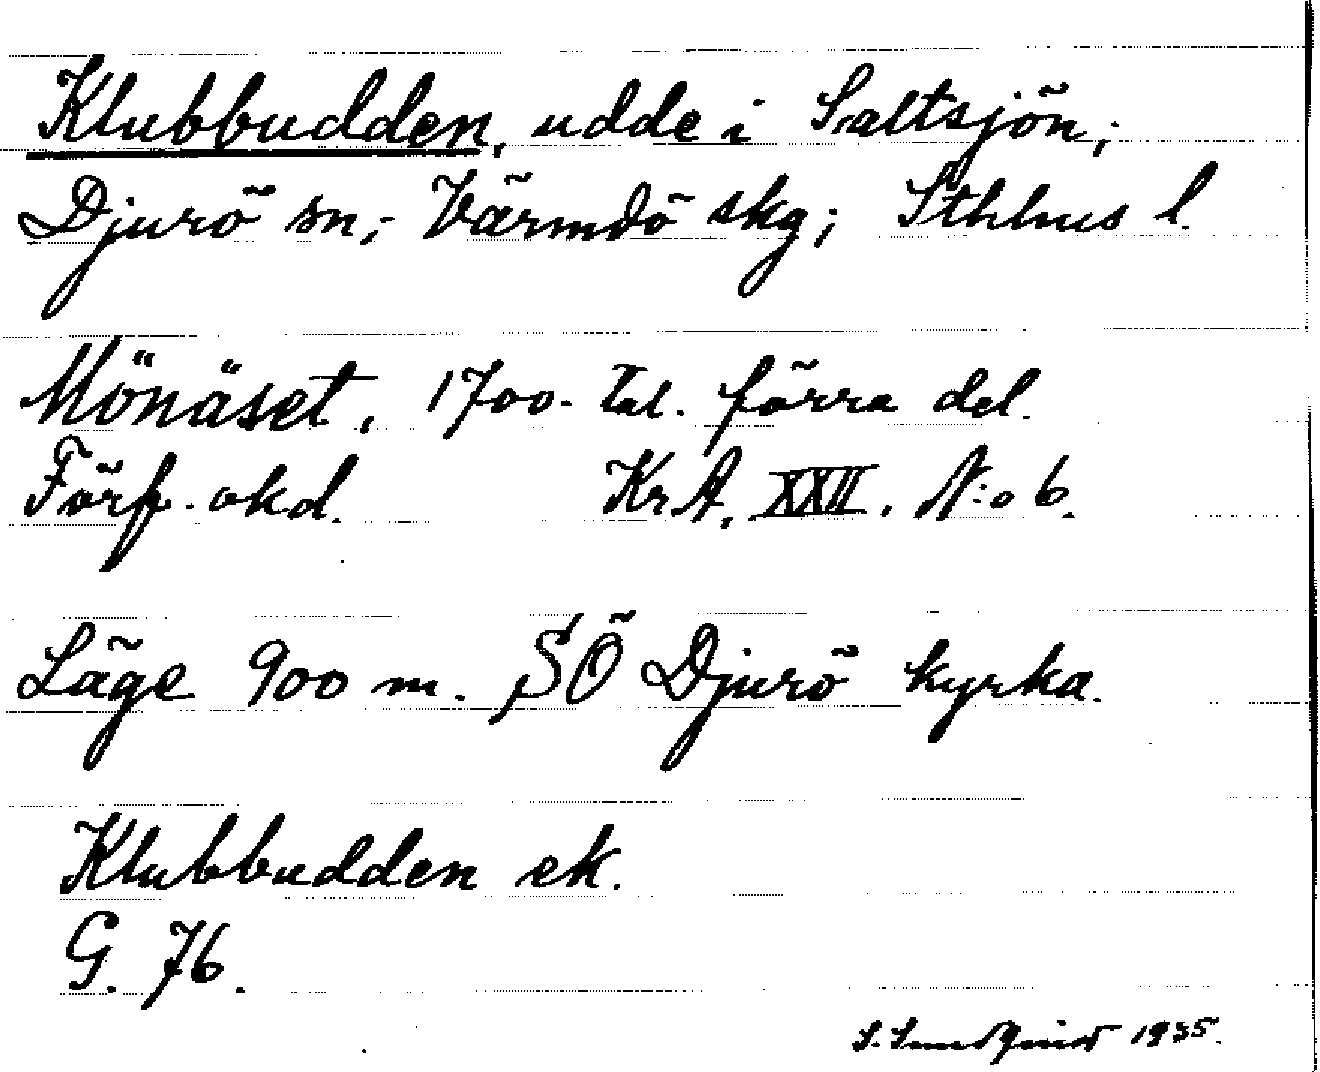 Klubbudden, udde i Saltsjön,
Djurö sn, Värmdö skg; Sthlms l.
Mönäset, 1700-tal. förra del.
Förf. okd. KrA. XXII. N:o 6.
Läge 900 m. SÖ Djurö kyrka.
Klubbudden ek.
G. 76.
S. Sundquist 1935.